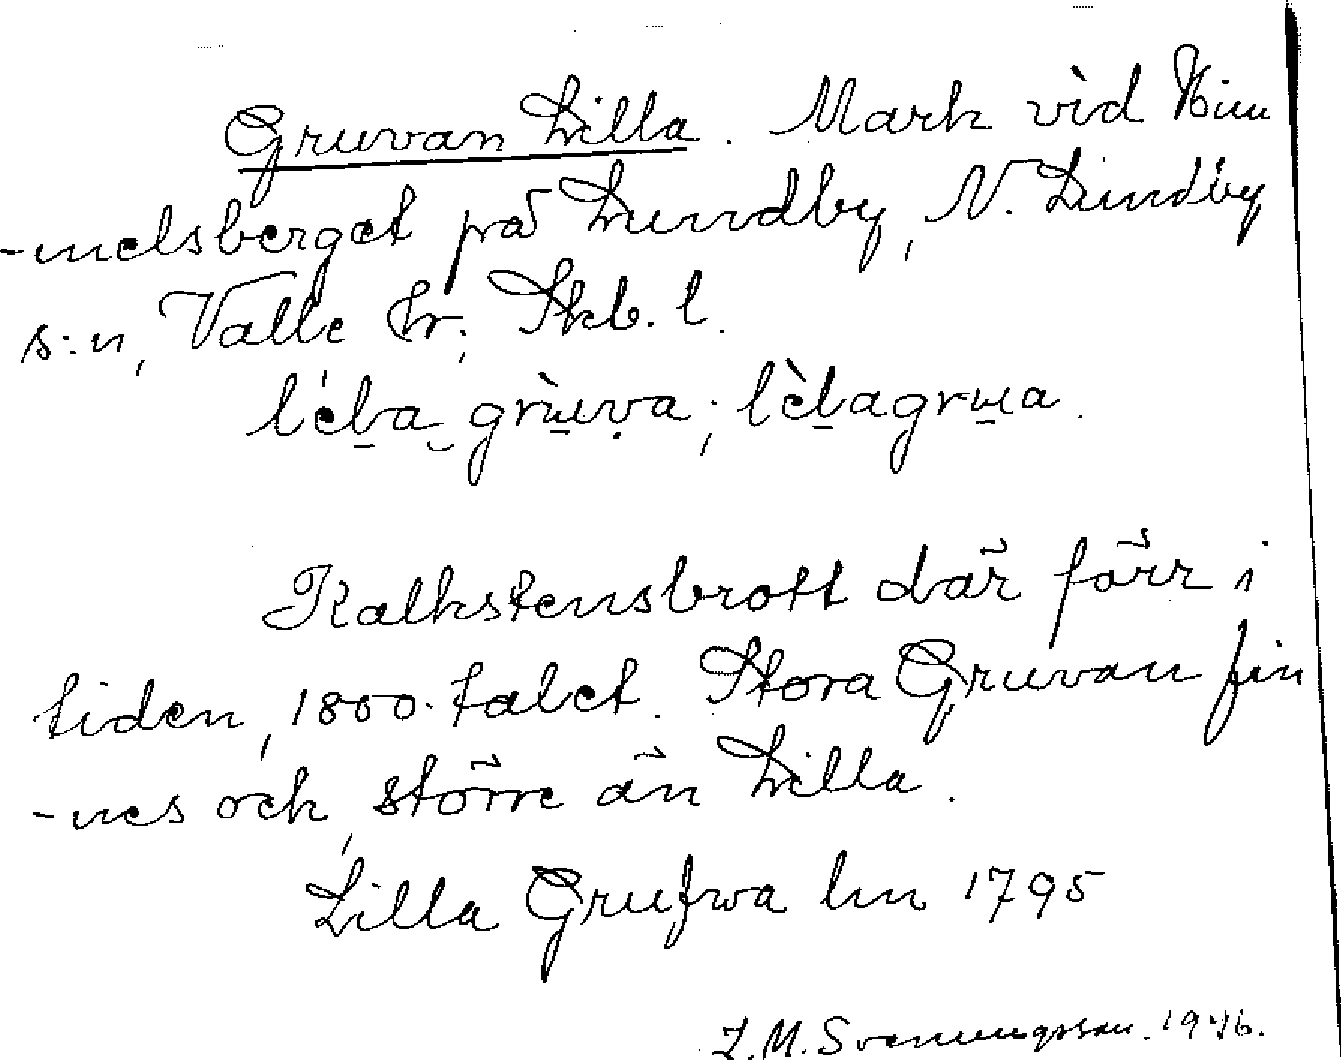 Gruvan Lilla. Mark vid Him
-melsberget på Lundby, N. Lundby
s:n, Valle hr; Skb. l.
lèḇa̱ grùva; lèḇagrua.
Kalkstensbrott där förr i
tiden, 1800-talet. Stora Gruvan fin
-nes och, större än Lilla.
Lilla Grufwa hm 1795
L.M. Svenungsson. 1946.